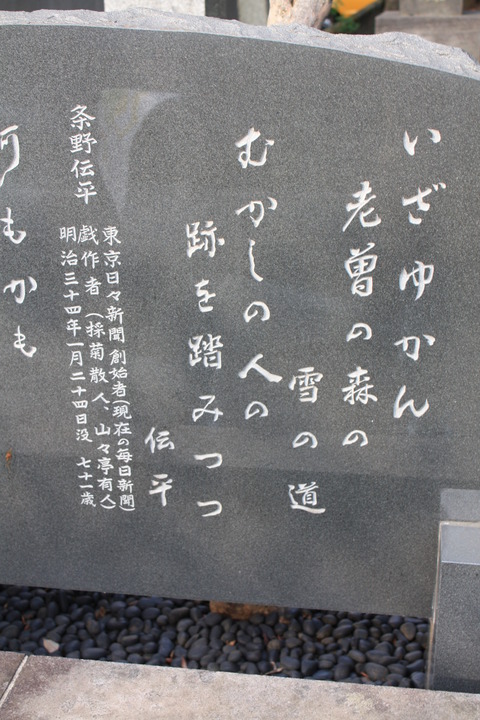 いざゆかん
老曽の森の
雪の道
むかしの人の
跡を踏みつつ
伝平
条野伝平
東京日々新聞創始者(現在の毎日新聞)
戯作者(採菊散人、山々亭有人)
明治三十四年一月二十四日没 七十一歳
何もかも